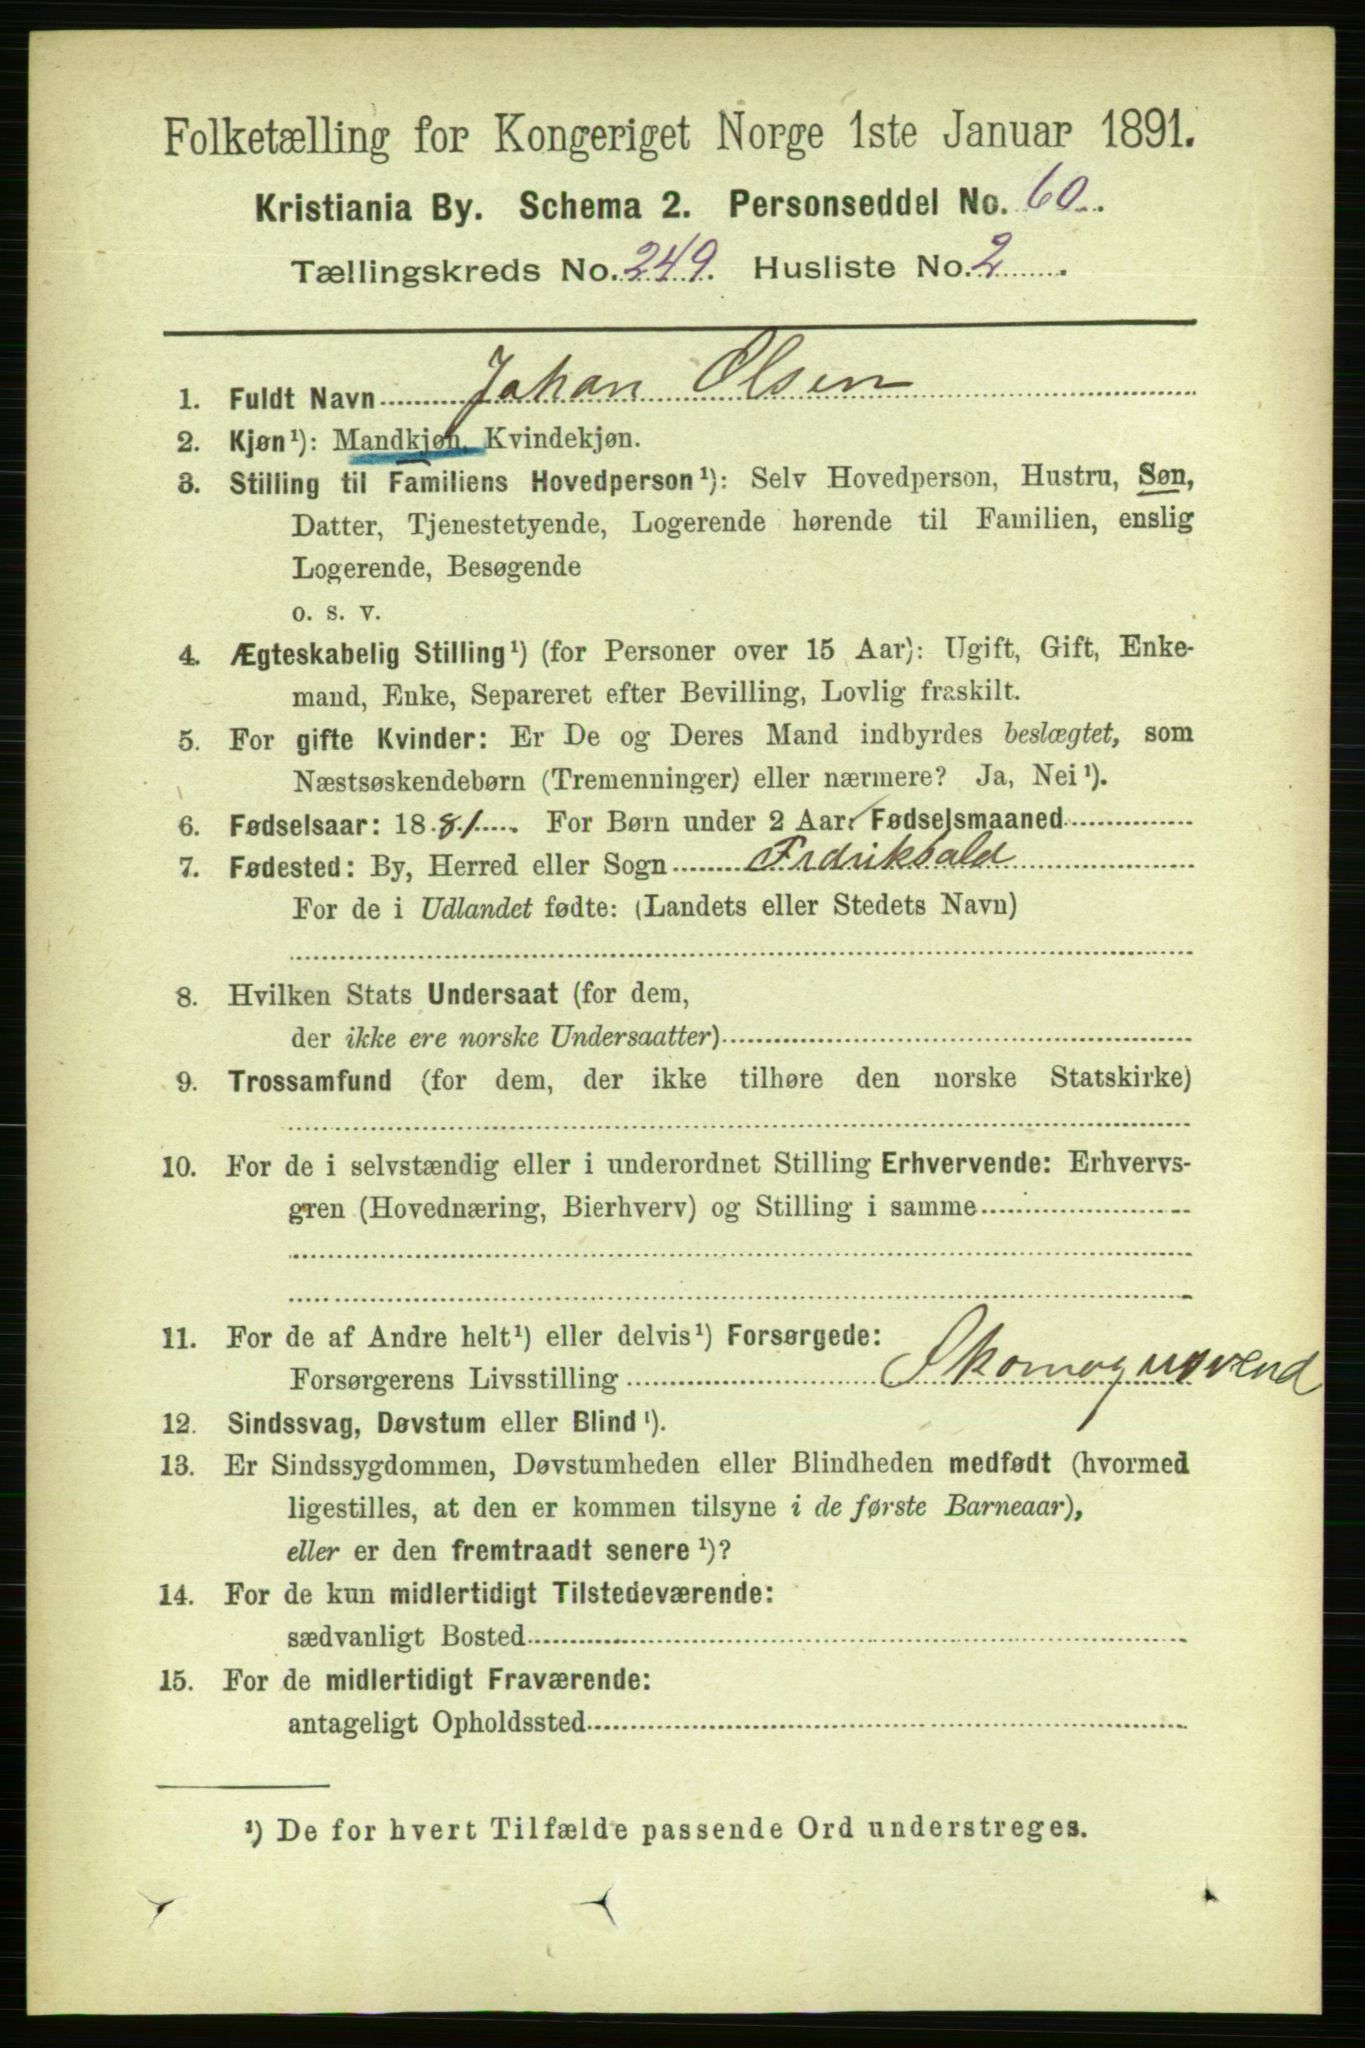 Folketælling for Kongeriget Norge 1ste Januar 1891.
Kristiania By. Schema 2. Personseddel No. 60
Tællingskreds No. 249. Husliste No. 2
1. Fuldt Navn Johan Olsen
2. Kjøn¹): Mandkjøn, Kvindekjøn.
3. Stilling til Familiens Hovedperson¹): Selv Hovedperson, Hustru, Søn,
Datter, Tjenestetyende, Logerende hørende til Familien, enslig
Logerende, Besøgende
o. s. v.
4. Ægteskabelig Stilling¹) (for Personer over 15 Aar): Ugift, Gift, Enke-
mand, Enke, Separeret efter Bevilling, Lovlig fraskilt.
5. For gifte Kvinder: Er De og Deres Mand indbyrdes beslægtet, som
Næstsøskendebørn (Tremenninger) eller nærmere? Ja, Nei¹).
6. Fødselsaar: 1881. For Børn under 2 Aar: Fødselsmaaned
7. Fødested: By, Herred eller Sogn Fdriksald
For de i Udlandet fødte: (Landets eller Stedets Navn)
8. Hvilken Stats Undersaat (for dem,
der ikke ere norske Undersaatter)
9. Trossamfund (for dem, der ikke tilhøre den norske Statskirke)
10. For de i selvstændig eller i underordnet Stilling Erhvervende: Erhvervs-
gren (Hovednæring, Bierhverv) og Stilling i samme
11. For de af Andre helt¹) eller delvis¹) Forsørgede:
Forsørgerens Livsstilling
12. Sindssvag, Døvstum eller Blind¹).
13. Er Sindssygdommen, Døvstumheden eller Blindheden medfødt (hvormed
ligestilles, at den er kommen tilsyne i de første Barneaar),
eller er den fremtraadt senere¹)?
14. For de kun midlertidigt Tilstedeværende:
sædvanligt Bosted
15. For de midlertidigt Fraværende:
antageligt Opholdssted
¹) De for hvert Tilfælde passende Ord understreges.